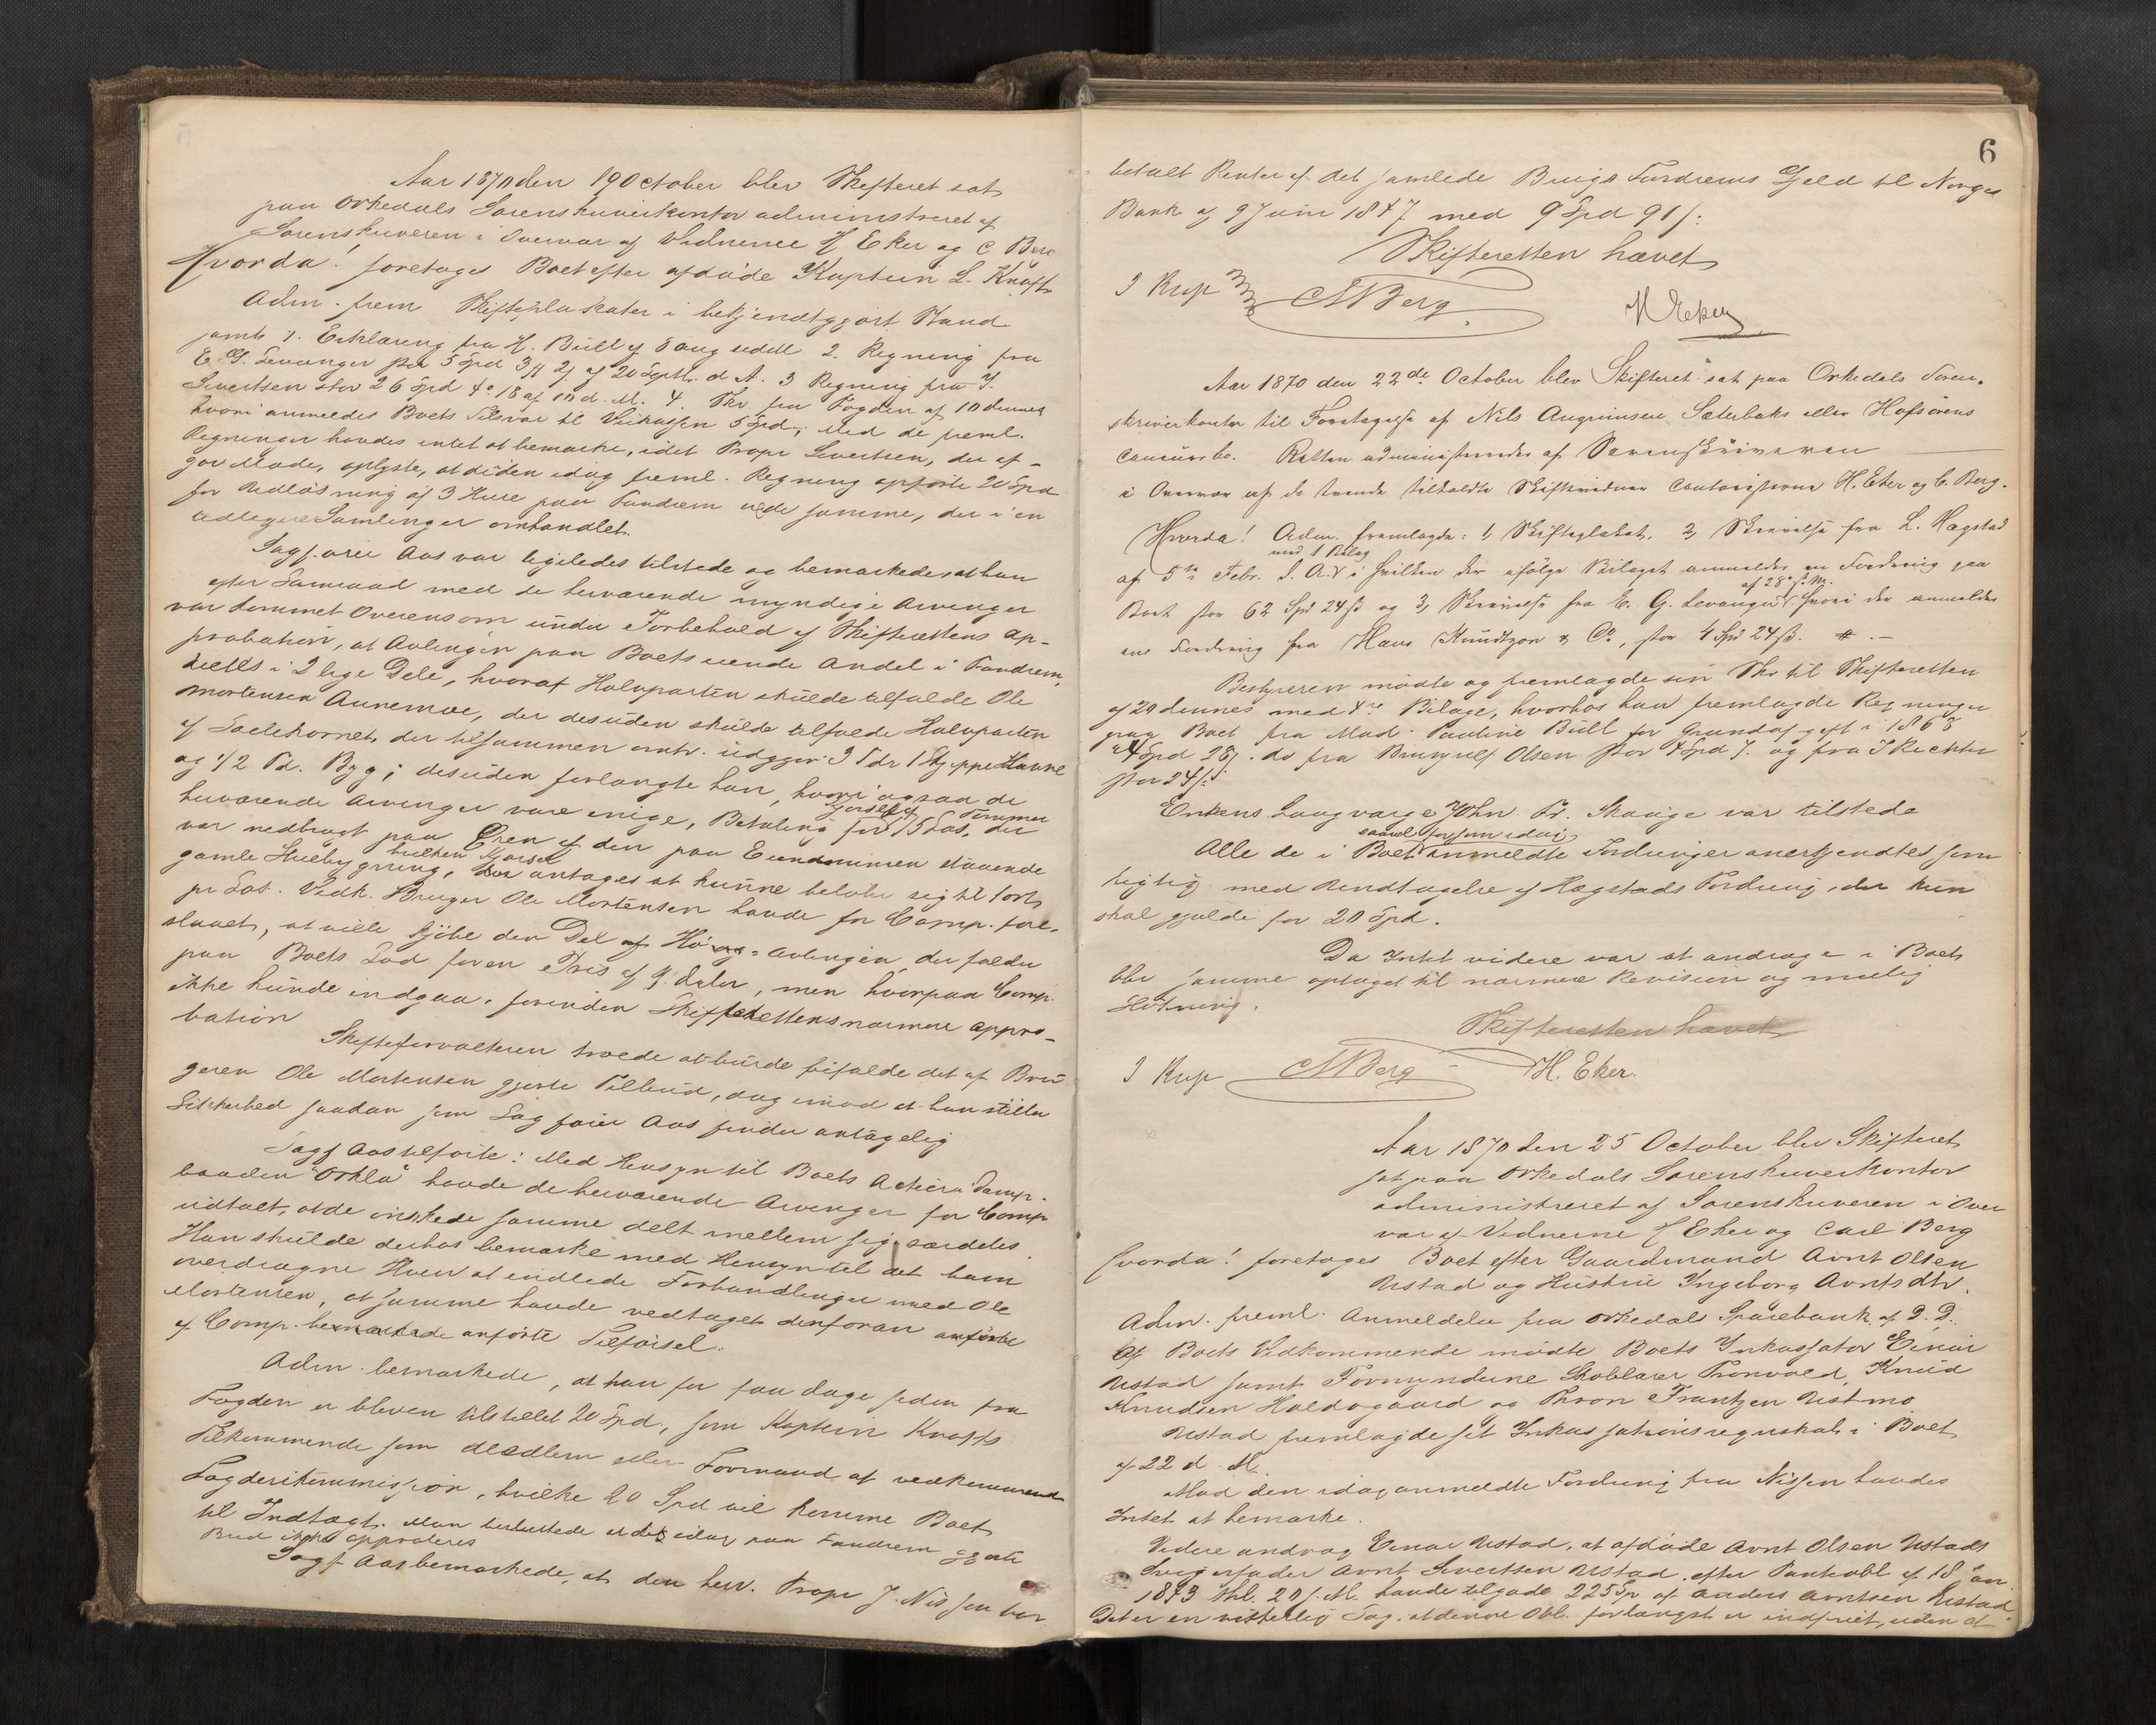 Aar 1870 den 19 October blev Skifteret sat
paa Orkedals Sorenskriverkontor administreret af
Sorenskriveren i Overvær af Vidnerne H Eker og C Berg
Hvorda! foretages Boet efter afdøde Kaptein L. Knoff
Adm. frem Skifteplakater i bekjendtgjort Stand
samt 1. Erklæring fra H. Büll af 8 aug sidstl 2. Regning fra
E. G. Levanger stor 5 Spd 3 2 af 20 Septb. d. A. 3 Regning fra J.
Sivertsen stor 26 Spd 4 18 af 10 d. M. 4. Skr. fra Fogden af 10 dennes
hvori anmeldes Boets Tilsvar til Veikassen 5 Spd; Med de freml.
Regninger havdes intet at bemærke, idet Propr Sivertsen, der af-
gav Møde, oplyste, at di den idag freml. Regning opførte 20 Spd
for Indløsning af 3 Huse paa Fandrem er de samme, der i en
tidligere Samlinger omhandlet.
Sagfører Aas var ligeledes tilstede og bemærkede, at han
efter Samraad med de herværende myndige Arvinger
var kommet Overens om under Forbehold af Skifterettens ap-
probation, at Avlingen paa Boets eiende Andel i Fandrem
deeltes i 2 lige Dele, hvoraf Halvparten skulde tilfalde Ole
Mortensen Aunemoe, der desuden skulde tilfalde Halvparten
af Saekornet, der tilsammen omtr. udgjør 3 Tdr 1 Skjeppe Havre
og 1/2 Td. Byg; desuden forlangte han, hvori ogsaa de
herværende Arvinger vare enige, Betaling for Kjørsel af 15 Læs Tømmer, der
var nedbragt paa Øren af den paa Eiendommen staaende
gamle Huebygning, hvilken Kjørsel antages at kunne beløbe sig til 1 ort
pr Læs. Vedk. Bruger Ole Mortensen havde for Comp. fore-
slaaet, at ville kjøbe den Del af Hø-avlingen, der falder
paa Boets Lod for en Pris af 9 Daler, men hvorpaa Comp.
ikke kunde indgaa, foruden Skifterettens nærmere appro-
bation
Skifteforvalteren troede at burde bifalde det af Bru-
geren Ole Mortensen gjorte Tilbud, dog imod at han stiller
Sikkerhed saadan som Sagfører Aas finder antagelig
Sagf Aas tilførte: Med Hensyn til Boets Actier i Damp-
baaden "Orkla" havde de herværende Arvinger for Comp
udtalt, at de ønskede samme delt mellem sig særdeles.
Han skulde derhos bemærke med Hensyn til det ham
overdragne Hverv at indlede Forhandlinger med Ole
Mortensen, at samme havde vedtaget denforan anførte
af Comp. bemærkede anførte Tilførsel.
Adm. bemærkede, at han for faa dage siden fra
Fogden er bleven tilstillet 20 Spd., som Kaptein Knoffs
Tilkommende som Medlem eller Formand af vedkommende
Lagdøerikommission, hvilke 20 Spd vil komme Boet
til Indtægt. Man besluttede at det idag paa Fandrem gjorte
Bud ikke approberes
Sagf Aas bemærkede, at den herv. Propr J. Nissen har
6
betalt Renter af det samlede Brugs Fandrems Gjeld til Norges
Bank af 9 Juni 1847 med 9 Spd 91 s.
Skifteretten hævet
J Krup CABerg H Eker
Aar 1870 den 22de October blev Skifteret sat paa Orkedals Soren-
skriverkontor til Foretagelse af Nils Angrimsen Sæterbaks eller Hofsørens
Concursbo. Retten administreredes af Sorenskriveren
i Overvær af de tvende tilkaldte Skiftevidner Contoristerne H. Eker og C. Berg.
Hvorda! Adm. fremlagde: 1, Skifteplakat, 2, Skrivelse fra L. Hagstad
med 1 Bilag
af 5te Febr. d. A. i hvilken der ifølge Bilaget anmeldes en Fordring paa
Boet stor 62 Spd 24 ß og 3, Skrivelse fra E. G. Levanger af 28 f. M. hvori der anmeldes
en Fordring fra Hans Knudtzon & Co, stor 4 Spd 24 ß.
Bestyreren mødte og fremlagde sin Skr til Skifteretten
af 20 dennes med 4re Bilage, hvorhos han fremlagde Regninger
paa Boet fra Mad. Pauline Büll for Grundafgift i 1868
4 Spd 28 s. do fra Brynjulf Olsen stor 4 Spd og fra J Richter
stor 24 s.
Enkens Laugværge John Pr. Skauge var tilstede
Alle de i Boet saavel før som idag anmeldte Fordringer anerkjendtes som
rigtig med Undtagelse af Hagstads Fordring, der kun
skal gjælde for 20 Spd.
Da Intet videre var at andrage i Boet
blev samme optaget til nærmere Revision og mulig
Slutning.
Skifteretten hævet
J Krup CABerg H. Eker.
Aar 1870 den 25 October blev Skifteret
sat paa Orkedals Sorenskriverkontor
administreret af Sorenskriveren i Over
vær af Vidnerne H Eker og Carl Berg
Hvorda! foretages Boet efter Gaardmand Arnt Olsen
Ustad og Hustru Ingeborg Arntsdtr.
Adm. freml. Anmeldelse fra Orkedals Sparebank af D. D.
Af Boets Vedkommende mødte Boets Inkassator Einar
Ustad samt Formynderne Skolelærer Tronvold, Knud
Knudsen Haldogaard og Thron Frantzen Ustmo
Ustad fremlagde sit Inkassationsregnskab i Boet
af 22 d. M.
Mod den idag anmeldte Fordring fra Nissen havdes
Intet at bemærke.
Videre androg Einar Ustad, at afdøde Arnt Olsen Ustads
Svigerfader Arnt Sivertsen Ustad, efter Pantobl. af 18 Jan.
1853 thl. 20 s. M. havde tilgode 225 Sp af Anders Arntsen Ustad.
Det er en vitterlig Sag, at denne Obl. forlængst er indfriet, uden at